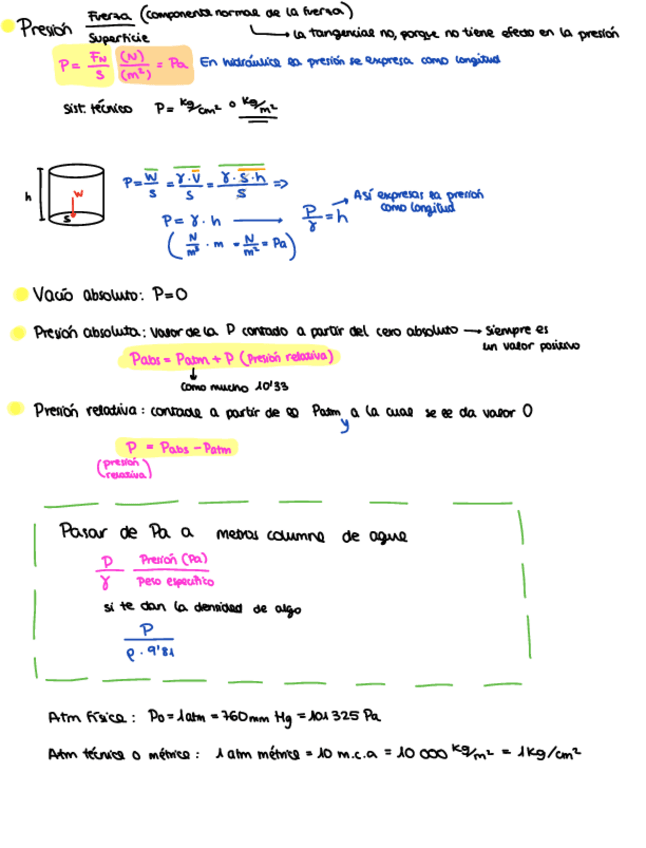 Presión Fuerza (componente normal de la fuerza)
Superficie
La tangencial no, porque no tiene efecto en la presión
P = FN/S (N)/(m²) = Pa En hidráulica la presión se expresa como longitud
Sist. técnico P = kg/cm² o kg/m²
h
W
S
P = W/S = γ·V/S = γ·S·h/S =>
P = γ·h → P/γ = h
Así expresas la presión como longitud
(N/m³ · m = N/m² = Pa)
Vacío absoluto: P=0
Presión absoluta: Valor de la P contado a partir del cero absoluto → siempre es
un valor positivo
Pabs = Patm + P (Presión relativa)
como mucho 10'33
Presión relativa: contada a partir de la Patm y a la cual se le da valor 0
P = Pabs - Patm
(presión
relativa)
Pasar de Pa a metros columna de agua
P/γ Presión (Pa)/Peso específico
si te dan la densidad de algo
P/ρ·9'81
Atm Física: Po = 1atm = 760mm Hg = 101 325 Pa
Atm técnica o métrica: 1 atm métrica = 10 m.c.a = 10 000 kg/m² = 1Kg/cm²